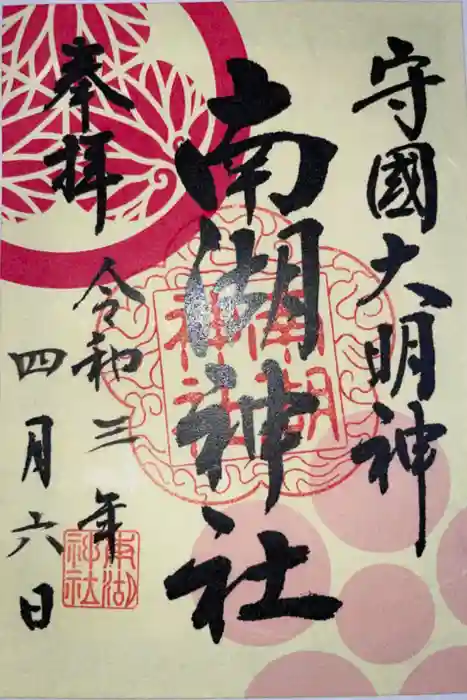 守國大明神
南湖神社
奉拝
令和三年
四月六日
南湖
神社
南湖
神社